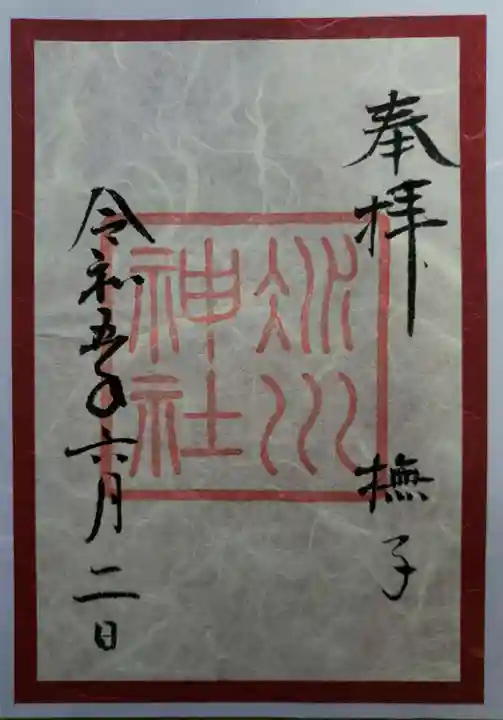 奉拝
撫子
氷川
神社
令和五年六月二日